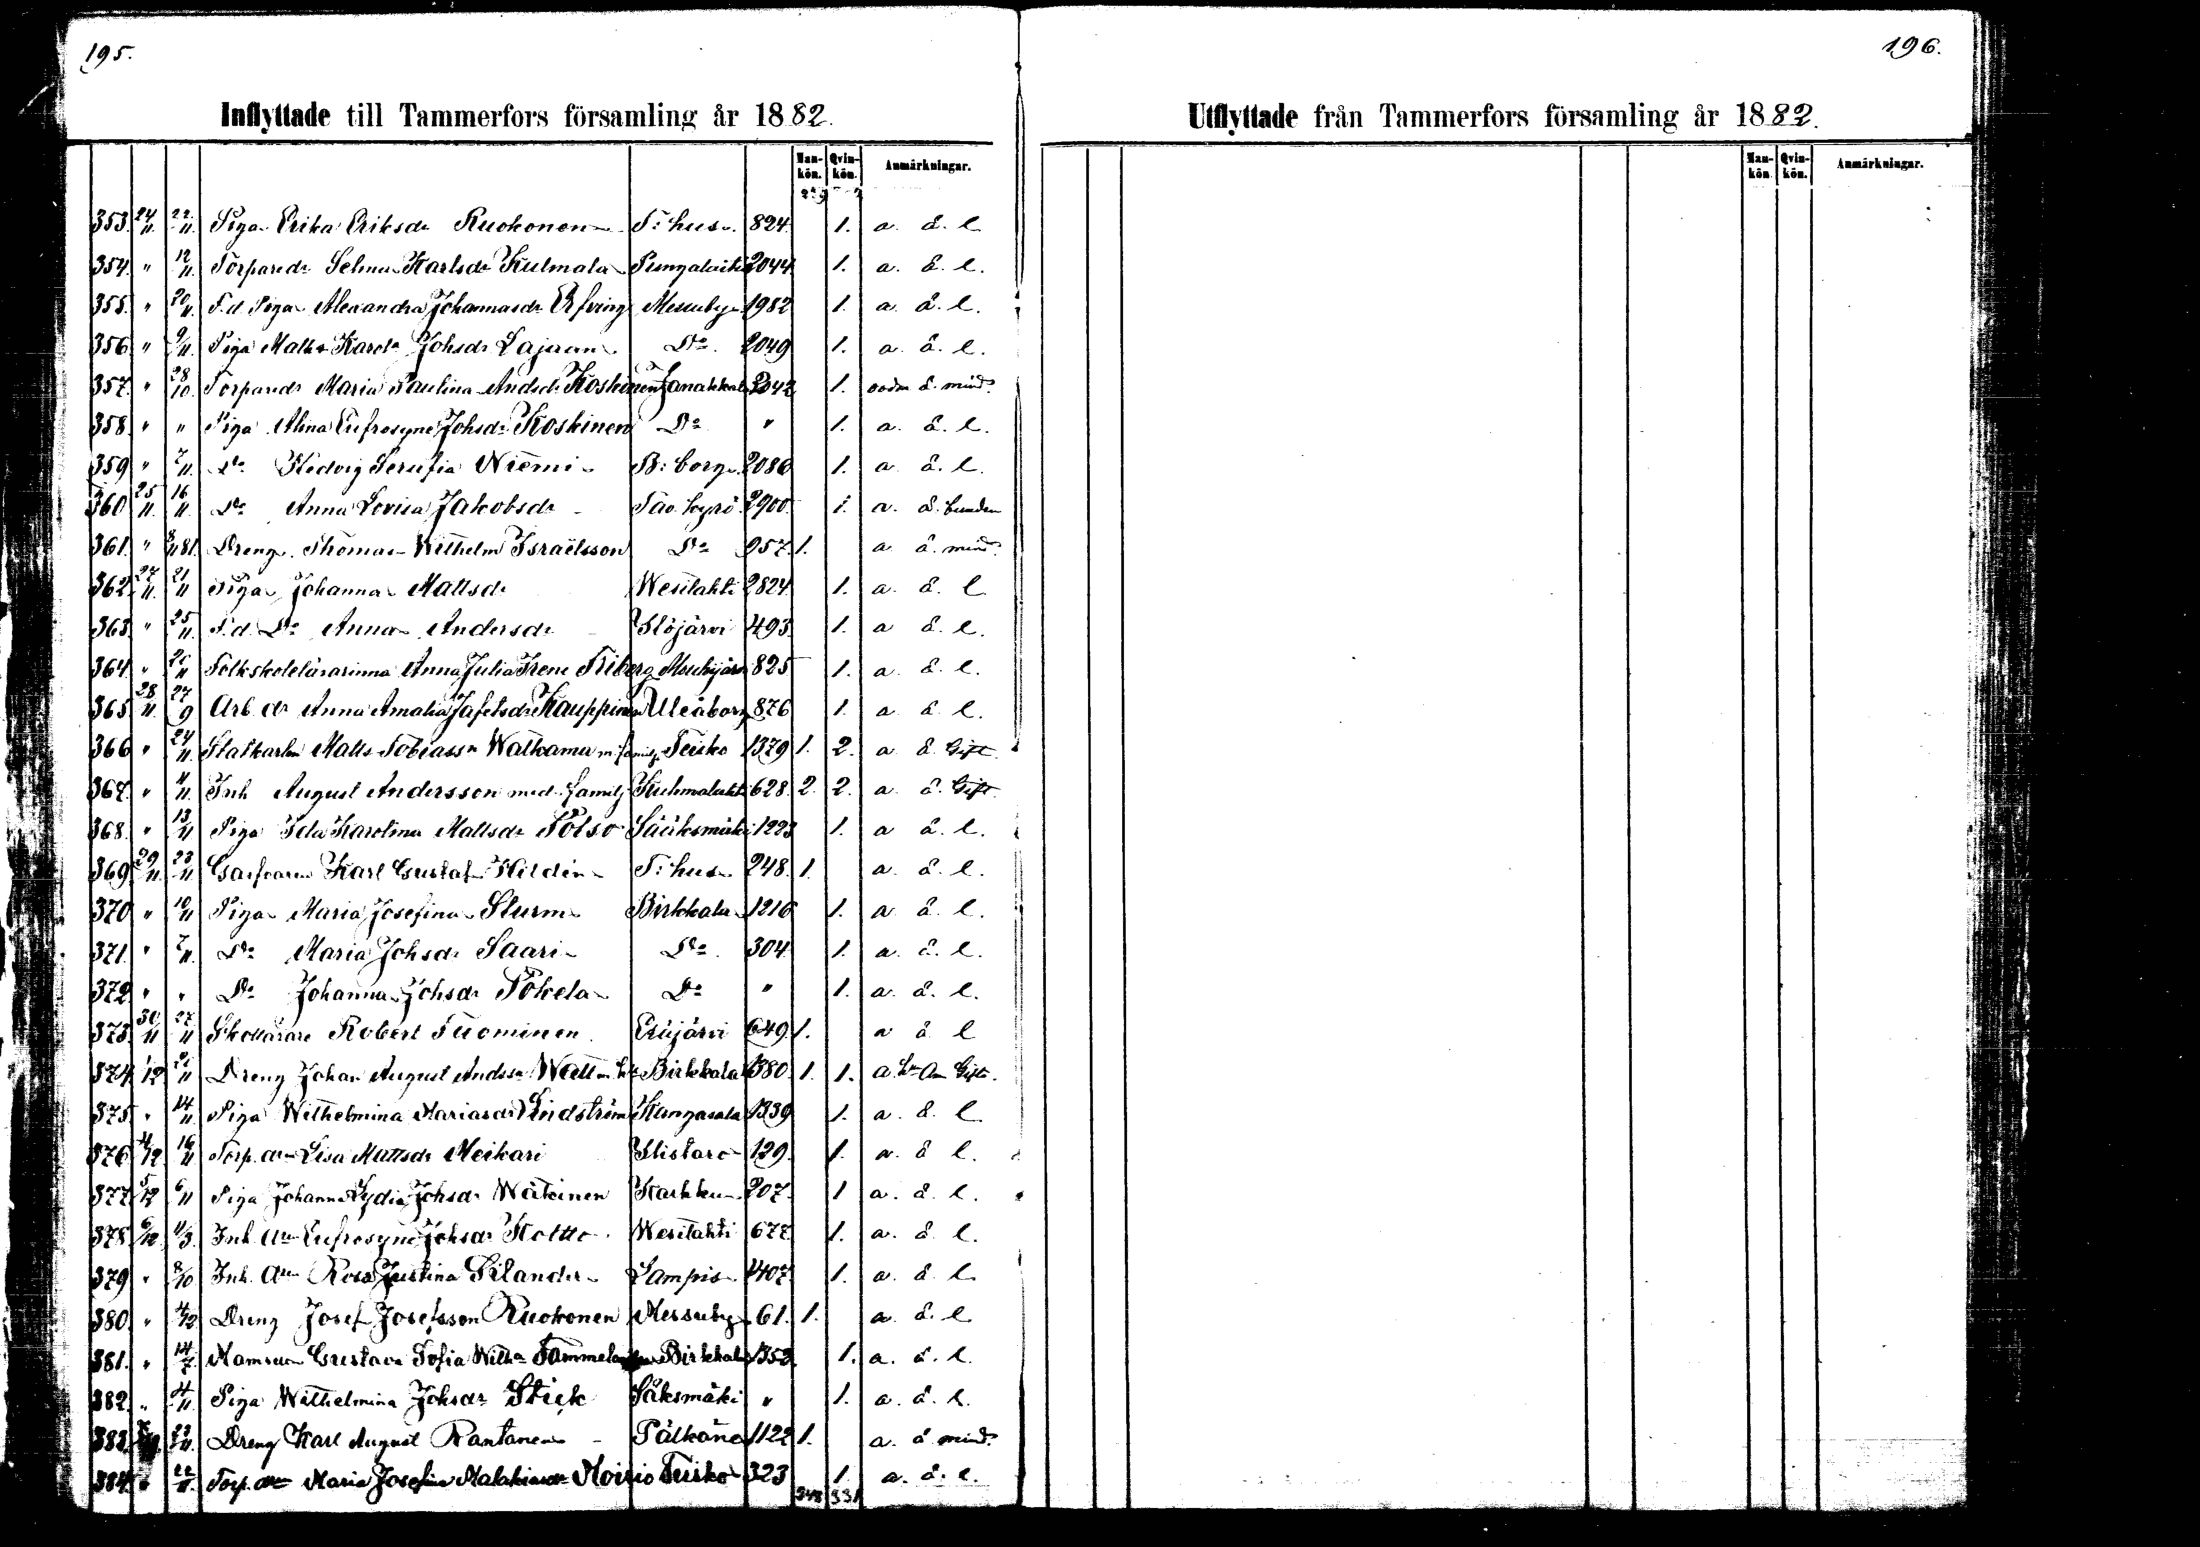 195.
Inflyttade till Tammerfors församling år 1882.
Man-kön. Qvin-kön. Anmärkningar.
353. 24/11. 22/11. Piga Erika Eriksdr Ruokonen T:hus 824. 1. a. å. l.
354. " 12/11. Torparedr Selma Karlsdr Kulmala Pungalaiti 2044 1. a. å. l.
355. " 20/11. F.d. Piga Alexandra Johannasdr Elfving Messuby 1982 1. a. å. l.
356. " 9/11. Piga Johsdr Lajunen Do. 2049 1. a. å. l.
357. " 28/10. Torparedr Maria Paulina Andsdr Koskinen Janakkala 2042 1. å. mind.
358. " " Piga Alina Eufrosyne Johsdr Koskinen Do " 1. a. å. l.
359. " 7/11. Do Hedvig Serafia Niemi B:borg 2086 1. a. å. l.
360. 25/11. 16/11. Do Anna Lovisa Jakobsdr Tav. kyrö 2900. 1. a. å. bunden
361. " 81. Dreng Thomas Wilhelm Israelsson Do 957. 1. a. å. mind.
362. 27/11. 21/11 Piga Johanna Mattsdr Wesilahti 2824. 1. a. å. l.
363. " 25/11. F.d. Do Anna Andersdr Ylöjärvi 493. 1. a å. l.
364. " Folkskolelärarinna Anna Julia Irene Friberg Mouhijärvi 825 1. a. å. l.
365. 28/11. 27/9 Arb. dr Anna Amalia Jafetsdr Kauppinen Uleåborg 876 1. a. å. l.
366. " 24/11. Statkarlen Matts Tobiasson Watkama m. familj Teisko 1379 1. 2. a. å. Gift.
367. " 11/11. Inh August Andersson med familj Kuhmalahti 628. 2. 2. a. å. Gift.
368. " 13/11 Piga Ida Karolina Mattsdr Pölsö Sääksmäki 1223 1. a å. l.
369. 29/11. 23/11 Garfvaren Karl Gustaf Hildén T:hus 248. 1. a. å. l.
370. " 10/11 Piga Maria Josefina Sturm Birkkala 1216 1. a. å. l.
371. " 7/11. Do Maria Johsdr Saari Do. 304. 1. a. å. l.
372. " " Do Johanna Johsdr Pökelä Do " 1. a. å. l.
373. 30/11 27/11 Skollärare Robert Tuominen. Etsijärvi 649. 1. a å l
374. 1/12 21/11 Dreng Johan August Andssn Wall m. h. Birkkala 1380. 1. 1. a. Gift.
375. " 14/11. Piga Wilhelmina Mariasdr Lindström Kangasala 1339 1. a. å. l.
376. 4/12 16/11 Torp. dr Lisa Mattsdr Meikari Ylistaro 129. 1. a. å l.
377. 5/12 6/11 Piga Johanna Lydia Johsdr Wätinen Karkku 207. 1 a. å. l.
378. 6/12. 11/3. Inh. dr Eufrosyne Johsdr Koltto Wesilahti 677. 1. a. å l.
379. " 8/10 Inh. dr Rosa Justina Silander Lampis 4407. 1. a. å. l.
380. " 4/12 Dreng Josef Josefsson Ruokonen Messuby 61. 1. a. å. l
381. " 14/7. Mamsell Gustava Sofia Wilh. Birkkala 1352 1. a. å. l.
382. " 4/11. Piga Wilhelmina Johsdr Stick Säksmäki " 1. a. å. l.
383. 22/11. Dreng Karl August Rantanen Pälkäne 1122 1. a. å mind.
384. " 22/11. Torp. dr Maria Josefina Malakiasdr Moisio Teisko 323 1. a. å. l.
348 331
196.
Utflyttade från Tammerfors församling år 1882.
Man-kön. Qvin-kön. Anmärkningar.